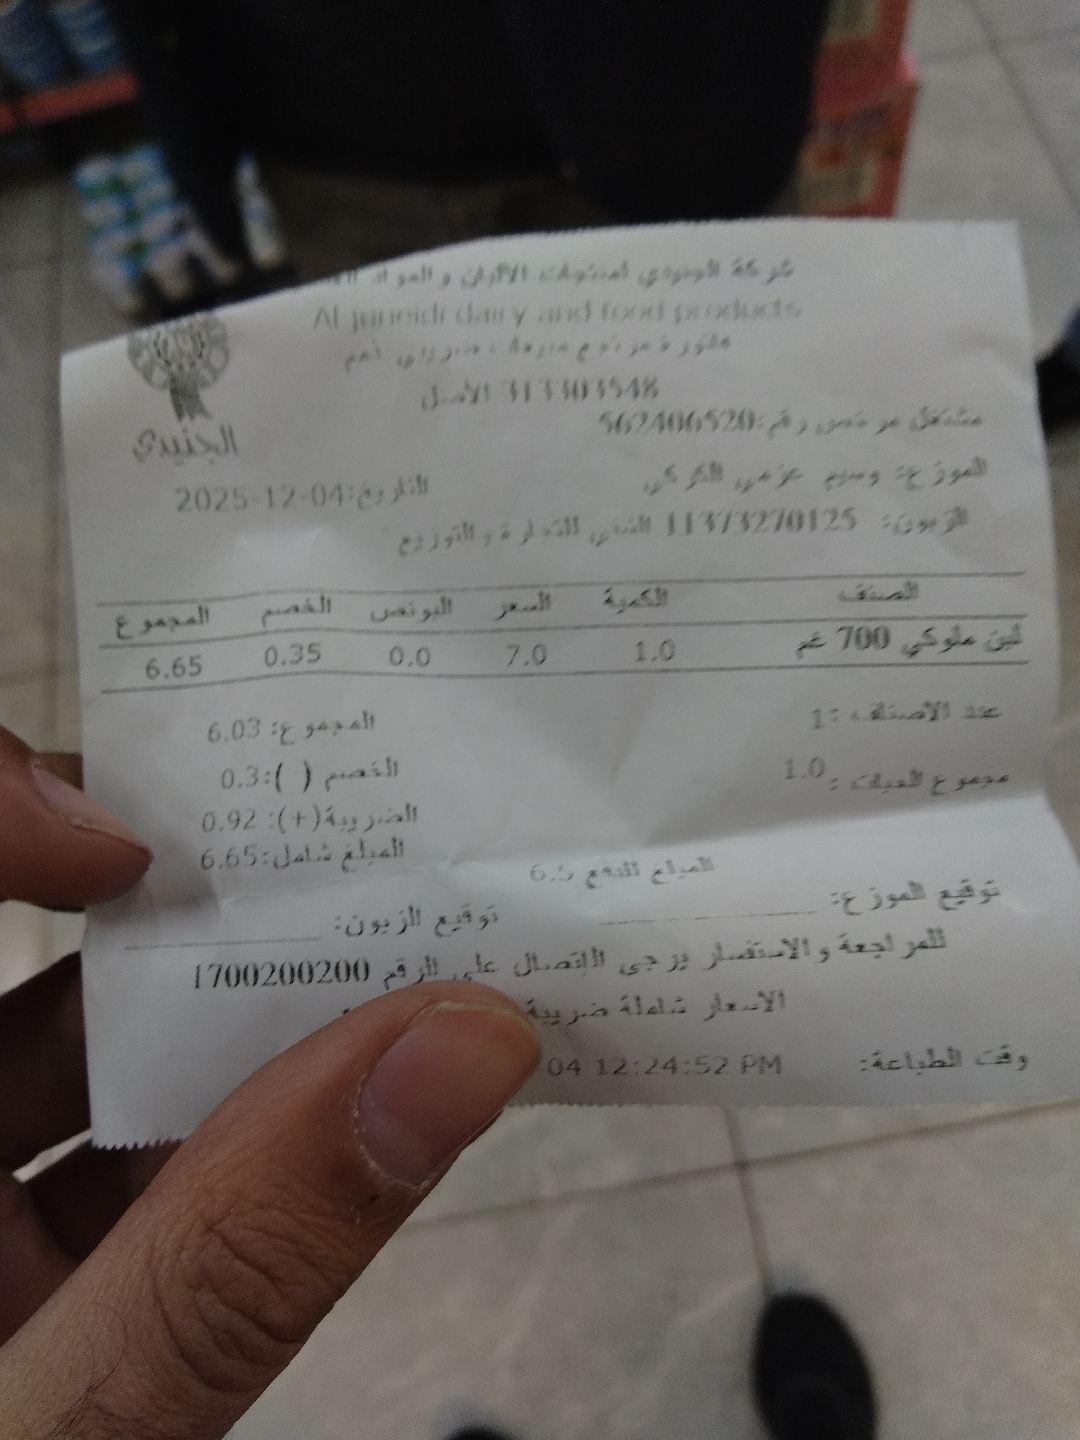 شركة الجنيدي لمنتجات الألبان و المواد
Al juneidi dairy and food products
الجنيدي
313303548 الأصل
مشتغل مرخص رقم:562406520
الموزع: وسيم عزمي الكركي
التاريخ:2025-12-04
الزبون: 11373270125 الشني للتجارة والتوزيع
الصنف الكمية السعر البونص الخصم المجموع
لبن ملوكي 700 غم 1.0 7.0 0.0 0.35 6.65
عدد الاصناف :1
المجموع: 6.03
مجموع الحبات : 1.0
الخصم ( ):0.3
الضريبة(+): 0.92
المبلغ شامل:6.65
المبلغ للدفع 6.5
توقيع الموزع:
توقيع الزبون:
للمراجعة والاستفسار يرجى الاتصال على الرقم 1700200200
الاسعار شاملة ضريبة
وقت الطباعة: 04 12:24:52 PM